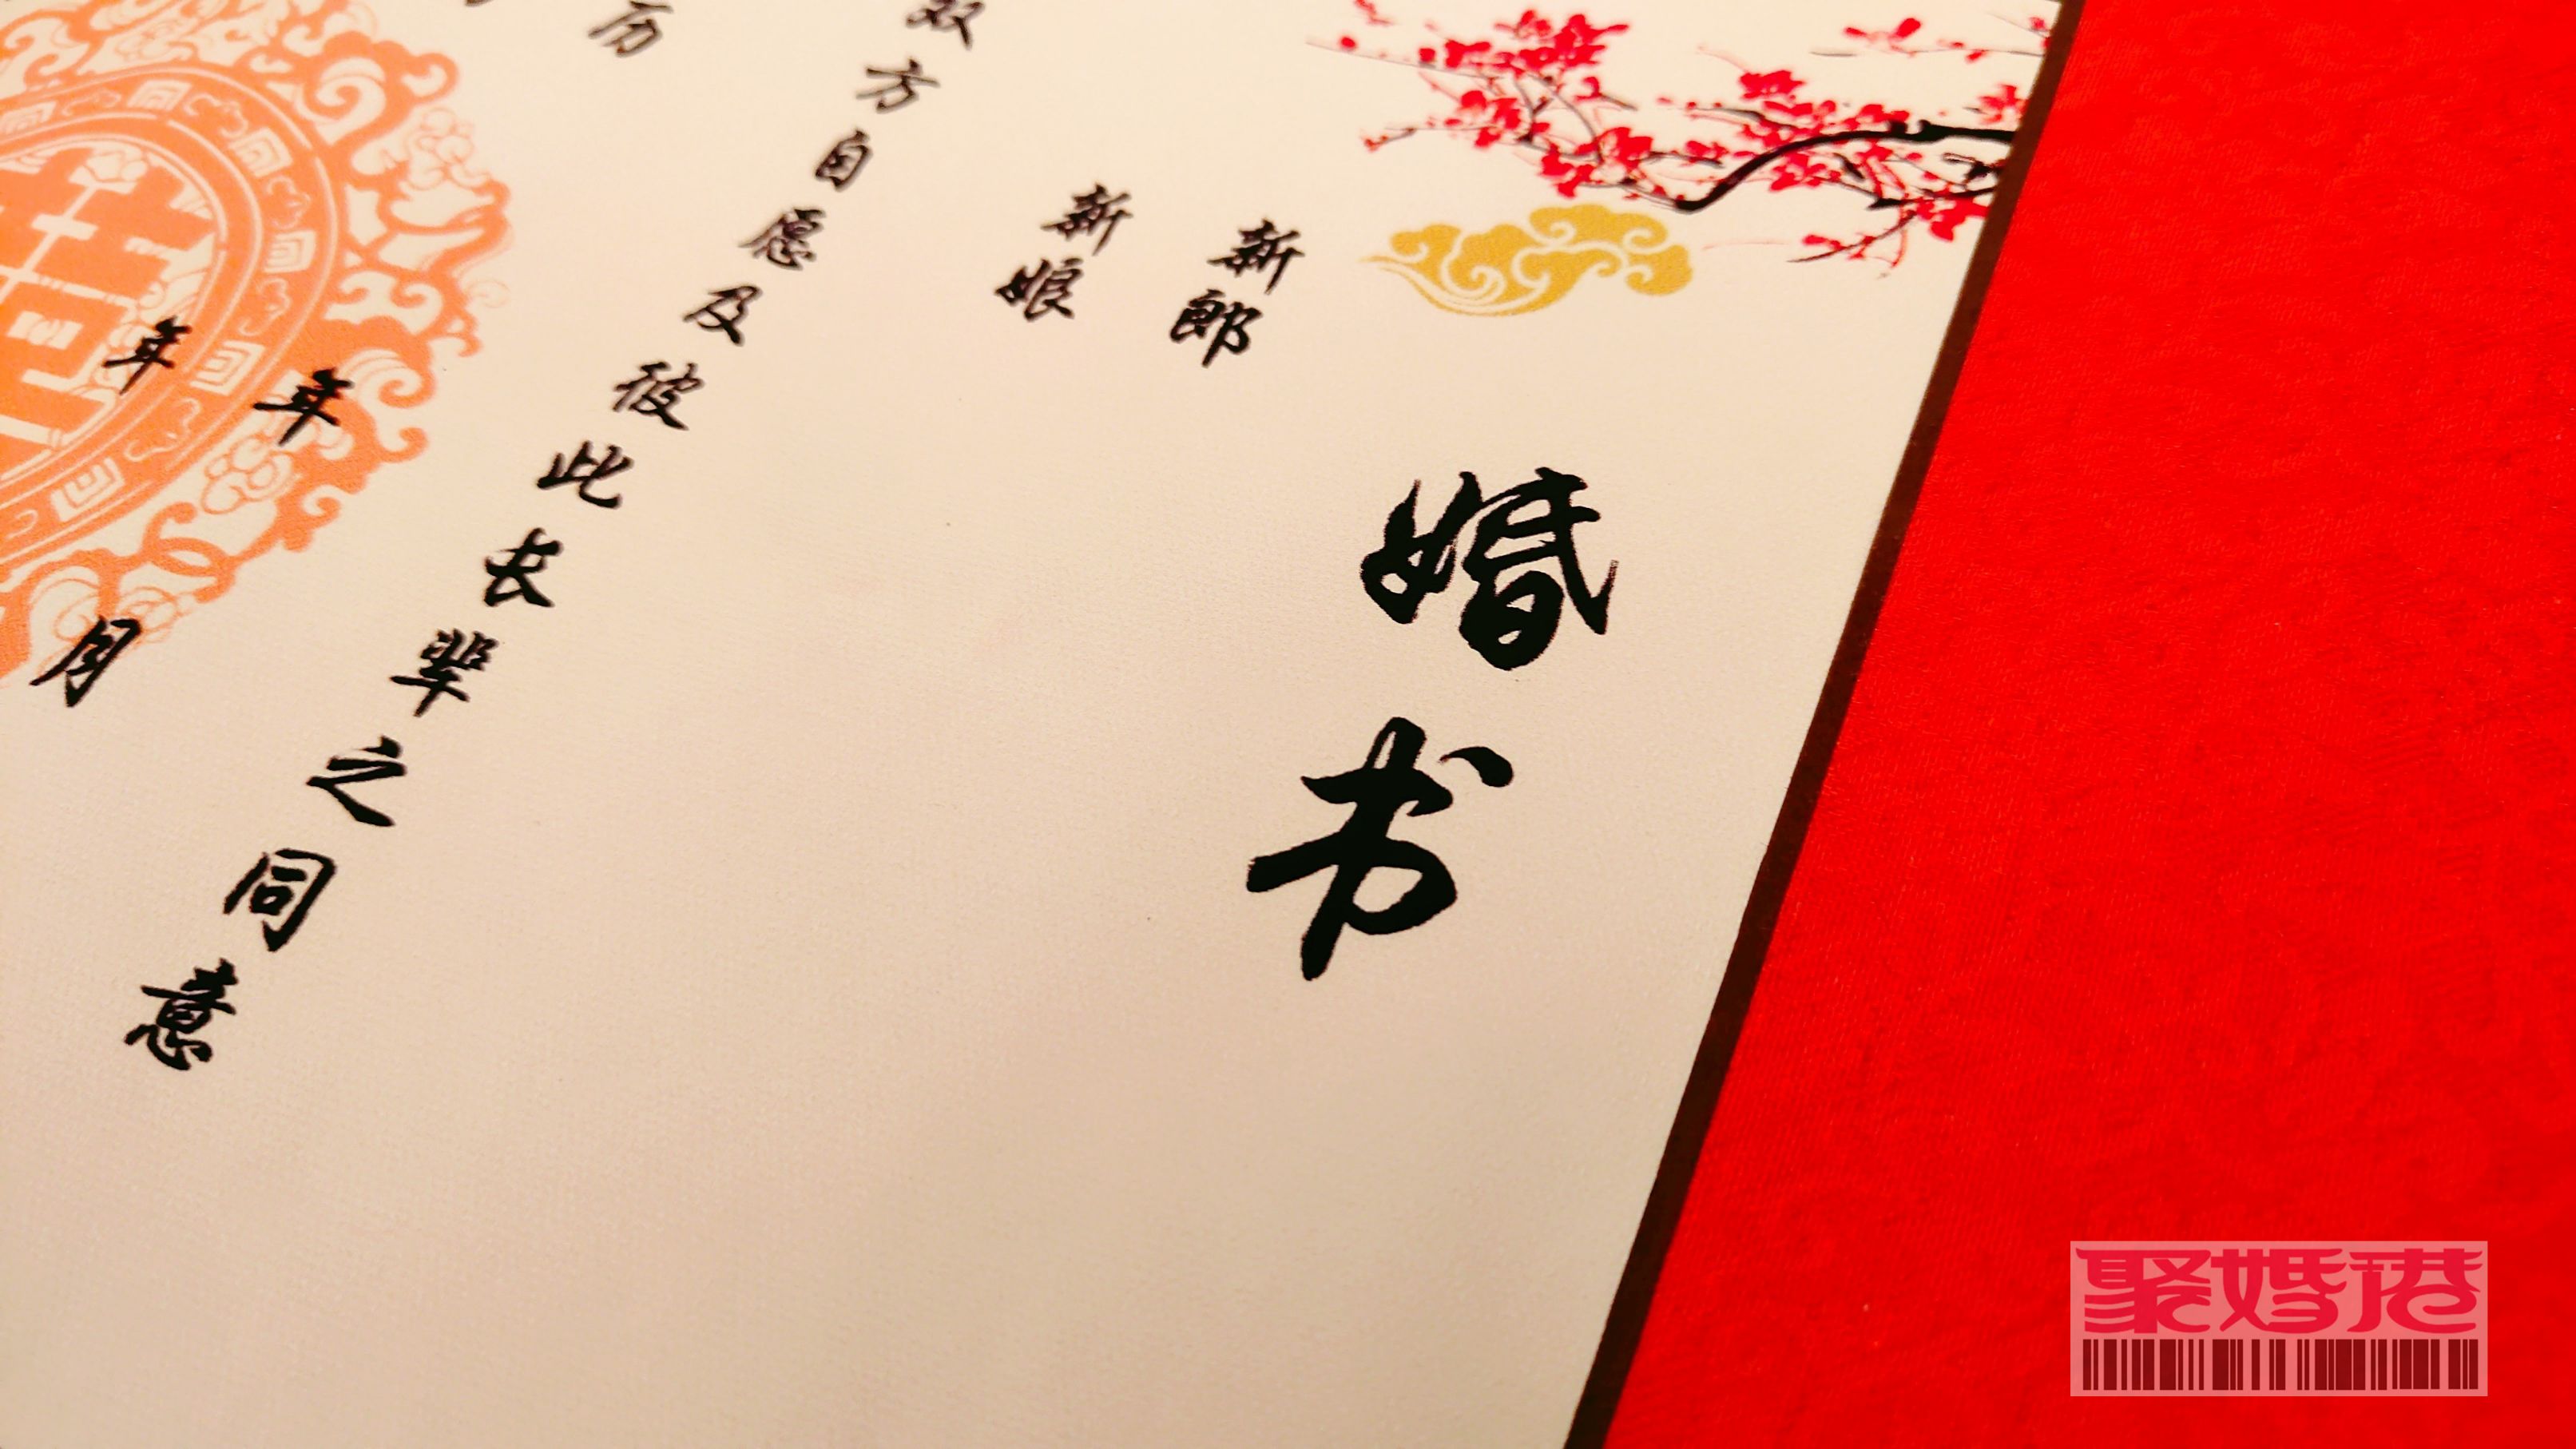 婚书
新郎
新娘
双方自愿及彼此长辈之同意
历
年
年
月
聚婚港